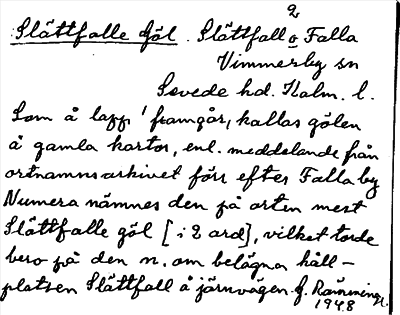 Slättfalle Göl. Slättfall o̱ Falla
2
Vimmerby sn
Sevede hd. Kalm. l.
Som å lapp 1 framgår, kallas gölen
å gamla kartor, enl. meddelande från
ortnamnsarkivet förr efter Falla by
Numera nämnes den på orten mest
Slättfalle göl [i 2 ord], vilket torde
bero på den n. om belägna håll-
platsen Slättfall å järnvägen. J. Rämninge.
1948